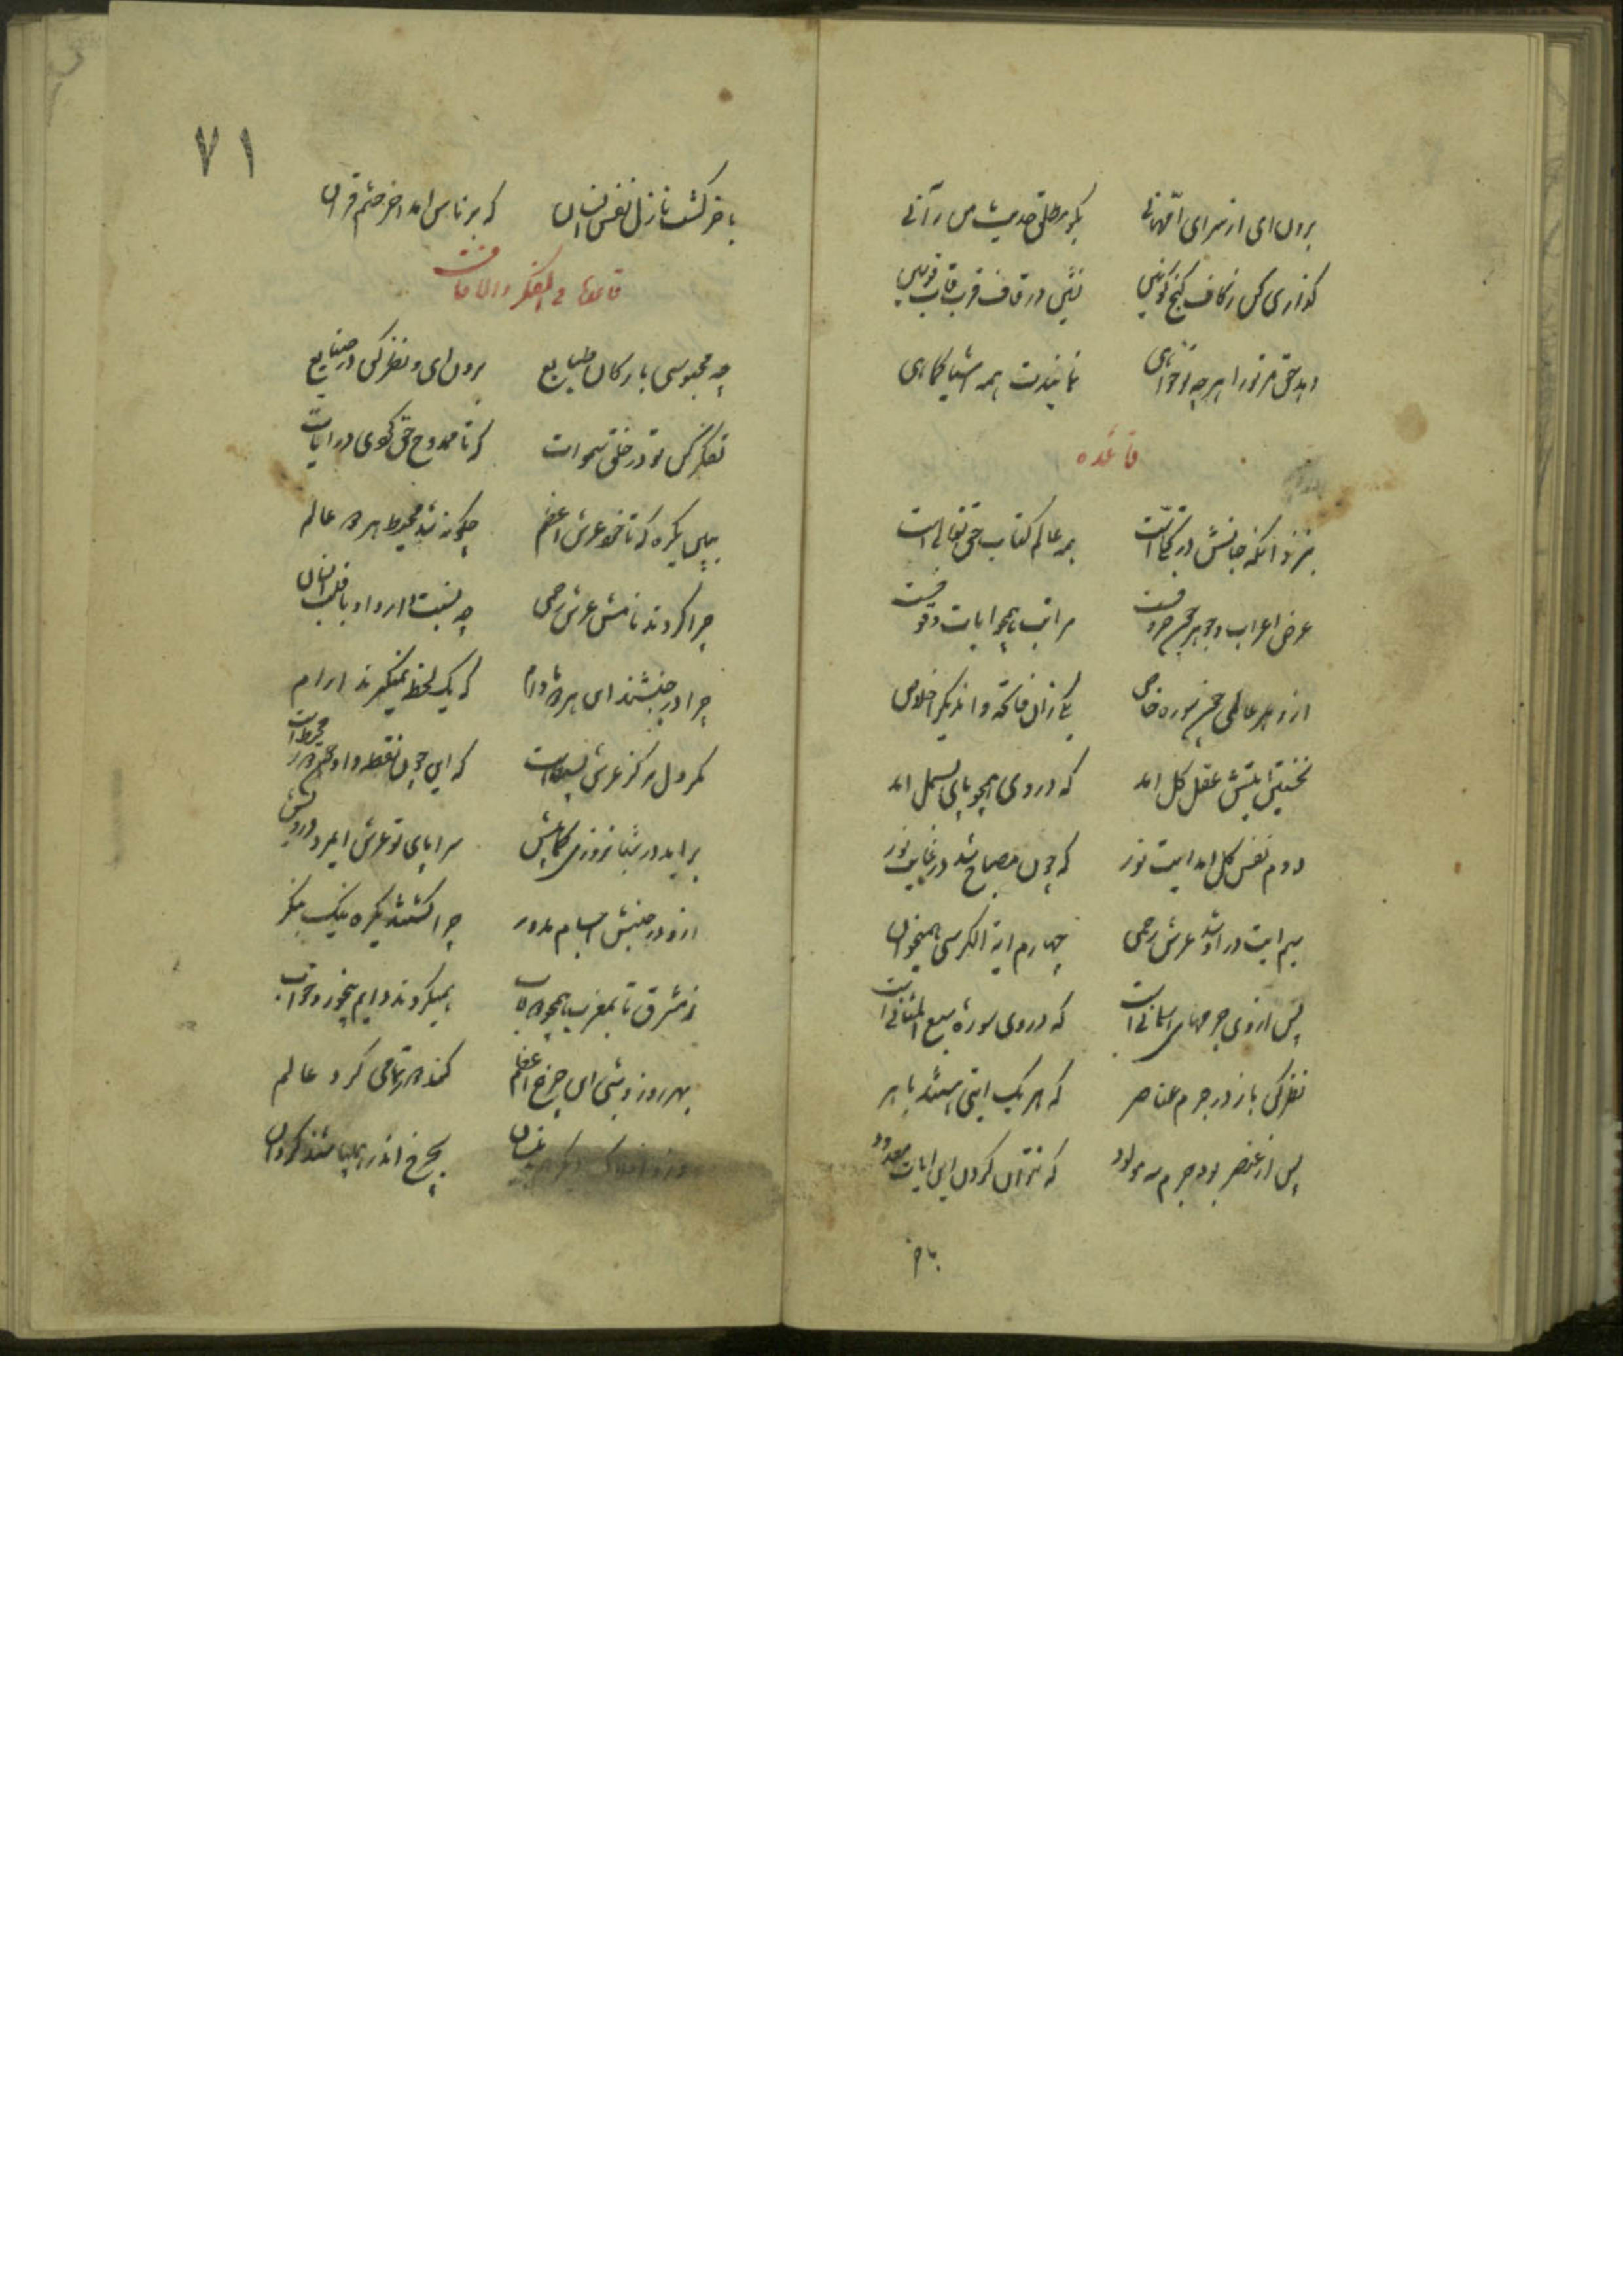 برون ای از سرای ام هانی بکو مطلق حدیث من رآنی
کذاری کن ز کاف کنج کونین نشین در قاف قرب قاب قوسین
دهد حق مر ترا هر چه تو خواهی نمایندت همه اشیا کماهی
قاعده
بنزد انکه جانش در تجلیست همه عالم کتاب حق تعالی است
عرض اعراب و جوهر چون حروفست مراتب همچو ایات وقوفست
ازو هر عالمی چون سوره خاص یکی زان فاتحه وان دیکر اخلاص
نخستین ایتش عقل کل امد که در وی همچو بای بسمل امد
دوم نفس کل امد ایت نور که چون مصباح شد در غایت نور
سیم ایت در او شد عرش رحمن چهارم ایة الکرسی همیخوان
پس از وی جرمهای اسمانی است که در وی سوره سبع المثانی است
نظر کن باز در جرم عناصر که هر یک ایتی هستند باهر
پس از عنصر بود جرم سه مولود که نتوان کردن این ایات معدود
باخر
۷۱
باخر کشت نازل نفس انسان که بر ناس امد اخر ختم قران
قاعده فی التفکر والافاقت
چه محبوسی بارکان طبایع برون ای و نظر کن در صنایع
تفکر کن تو در خلق سموات که تا ممدوح حق کوی در ایات
ببین یکره که تا خود عرش اعظم چکونه شد محیط هر دو عالم
چرا کردند نامش عرش رحمن چه نسبت دارد او با قلب انسان
چرا در جنبشند این هر دو مادام که یک لحظه نمیکیرند ارام
مکر دل مرکز عرش بسیطست که این چون نقطه وان دور محیط است
براید در شبانروزی کمابیش سراپای تو عرش ایمرد درویش
ازو در جنبش اجسام مدور چرا کشتند یکره نیک بنکر
ز مشرق تا بمغرب همچو دولاب همیکردند دایم بیخور و خواب
بهر روز و شبی این چرخ اعظم کند دور تمامی کرد عالم
وزو افلاک دیکر بدینسان بچرخ اندر همی باشند کردان